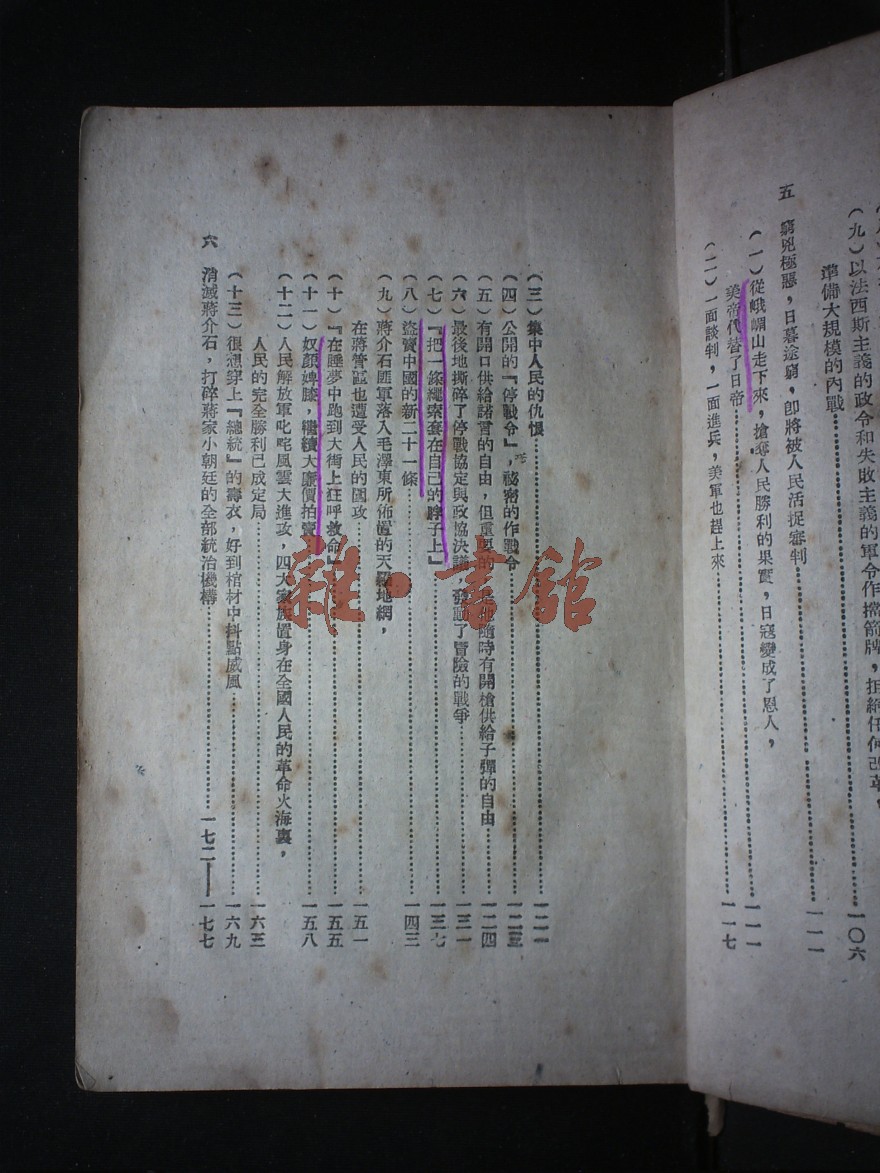 (九)以法西斯主義的政令和失敗主義的軍令作擋箭牌,拒絕任何改革,
準備大規模的內戰……一〇六
五 窮兇極惡,日暮途窮,即將被人民活捉審判……一一一
(一)從峨嵋山走下來,搶奪人民勝利的果實,日寇變成了恩人,
美帝代替了日帝……一一一
(二)一面談判,一面進兵,美軍也趕上來……一一七
(三)集中人民的仇恨……一二一
(四)公開的『停戰令』,祕密的作戰令……一二三
(五)有開口供給諾言的自由,但重要的是他隨時有開槍供給子彈的自由……一二四
(六)最後地撕碎了停戰協定與政協決議,發動了冒險的戰爭……一三一
(七)『把一條繩索套在自己的脖子上』……一三七
(八)盜賣中國的新二十一條……一四三
(九)蔣介石匪軍落入毛澤東所佈置的天羅地網,
在蔣管區也遭受人民的圍攻……一五一
(十)『在睡夢中跑到大街上狂呼救命』……一五五
(十一)奴顏婢膝,繼續大廉價拍賣……一五八
(十二)人民解放軍叱咤風雲大進攻,四大家族置身在全國人民的革命火海裏,
人民的完全勝利已成定局……一六三
(十三)很想穿上『總統』的壽衣,好到棺材中抖點威風……一六九
六 消滅蔣介石,打碎蔣家小朝廷的全部統治機構……一七二——一七七
雜·書館